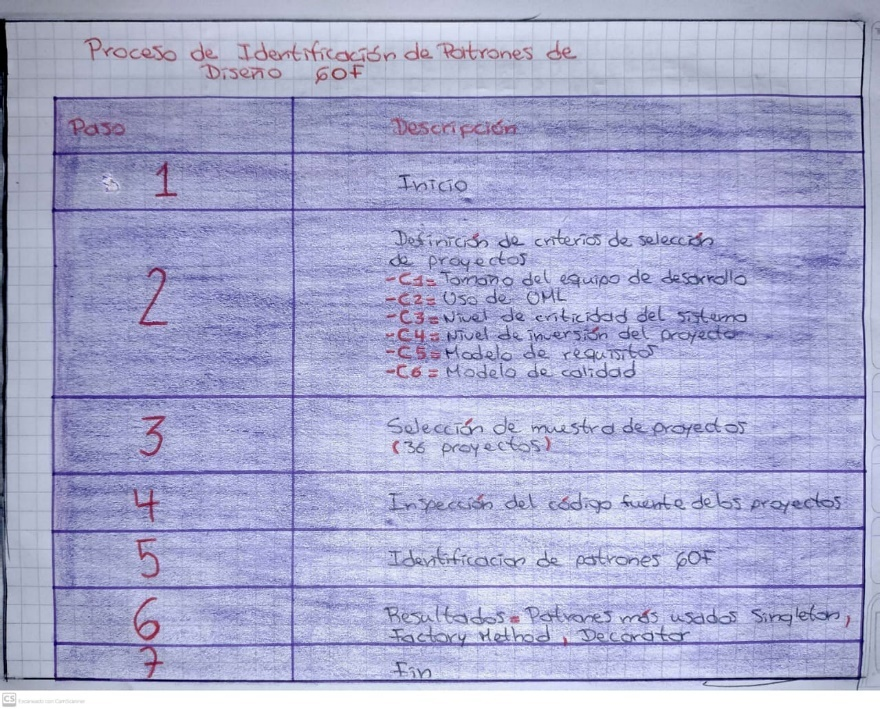 Proceso de Identificación de Patrones de
Diseño GOF
Paso
Descripción
1
Inicio
2
Definición de criterios de selección
de proyectos
-C1= Tamaño del equipo de desarrollo
-C2= Uso de UML
-C3= Nivel de criticidad del sistema
-C4= Nivel de inversión del proyecto
-C5= Modelo de requisitos
-C6= Modelo de calidad
3
Selección de muestra de proyectos
(36 proyectos)
4
Inspección del código fuente de los proyectos
5
Identificacion de patrones GOF
6
Resultados= Patrones más usados Singleton,
Factory Method, Decorator
7
Fin
CS Escaneado con CamScanner